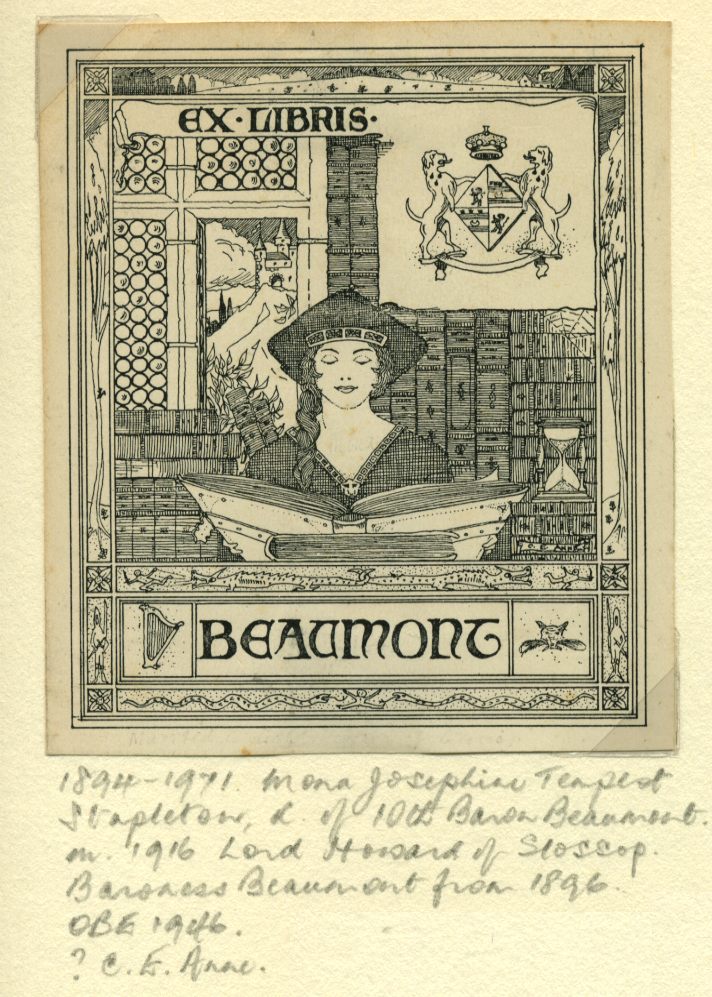 EX·LIBRIS·
BEAUMONT
1894-1971. Mona Josephine Tempest
Stapleton, d. of 10th Baron Beaumont.
m. 1916 Lord Howard of Glossop.
Baroness Beaumont from 1896.
OBE 1946.
? C. E. Anne.